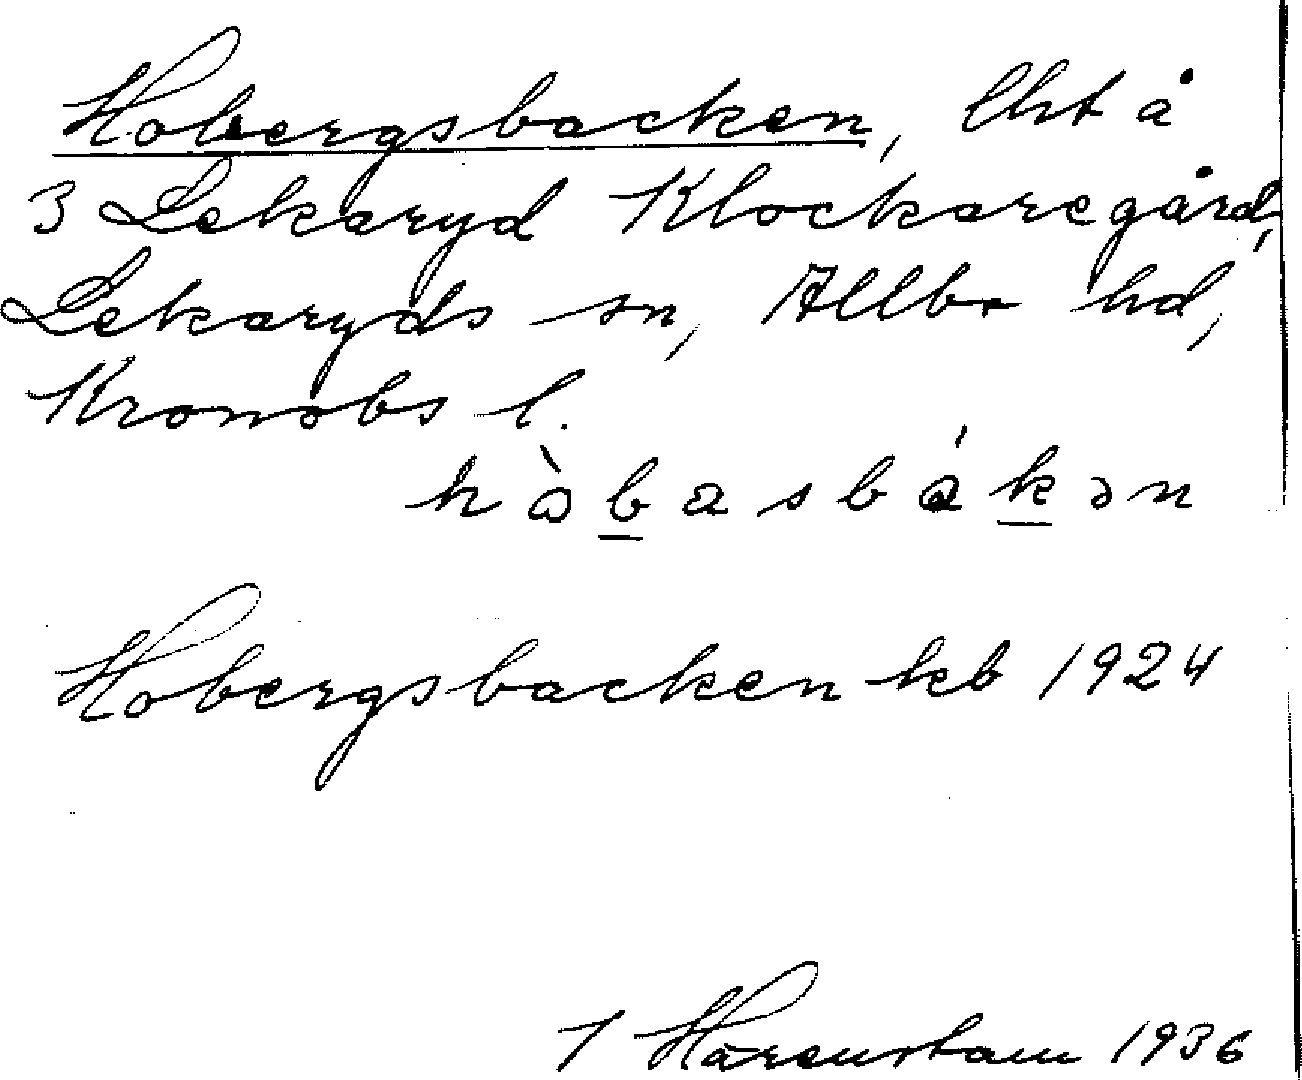 Hobergsbacken, lht å
3 Lekaryd Klockaregård,
Lekaryds sn, Allbo hd,
Kronobs l.
hɔ̀basbákən
Hobergsbacken kb 1924
1936